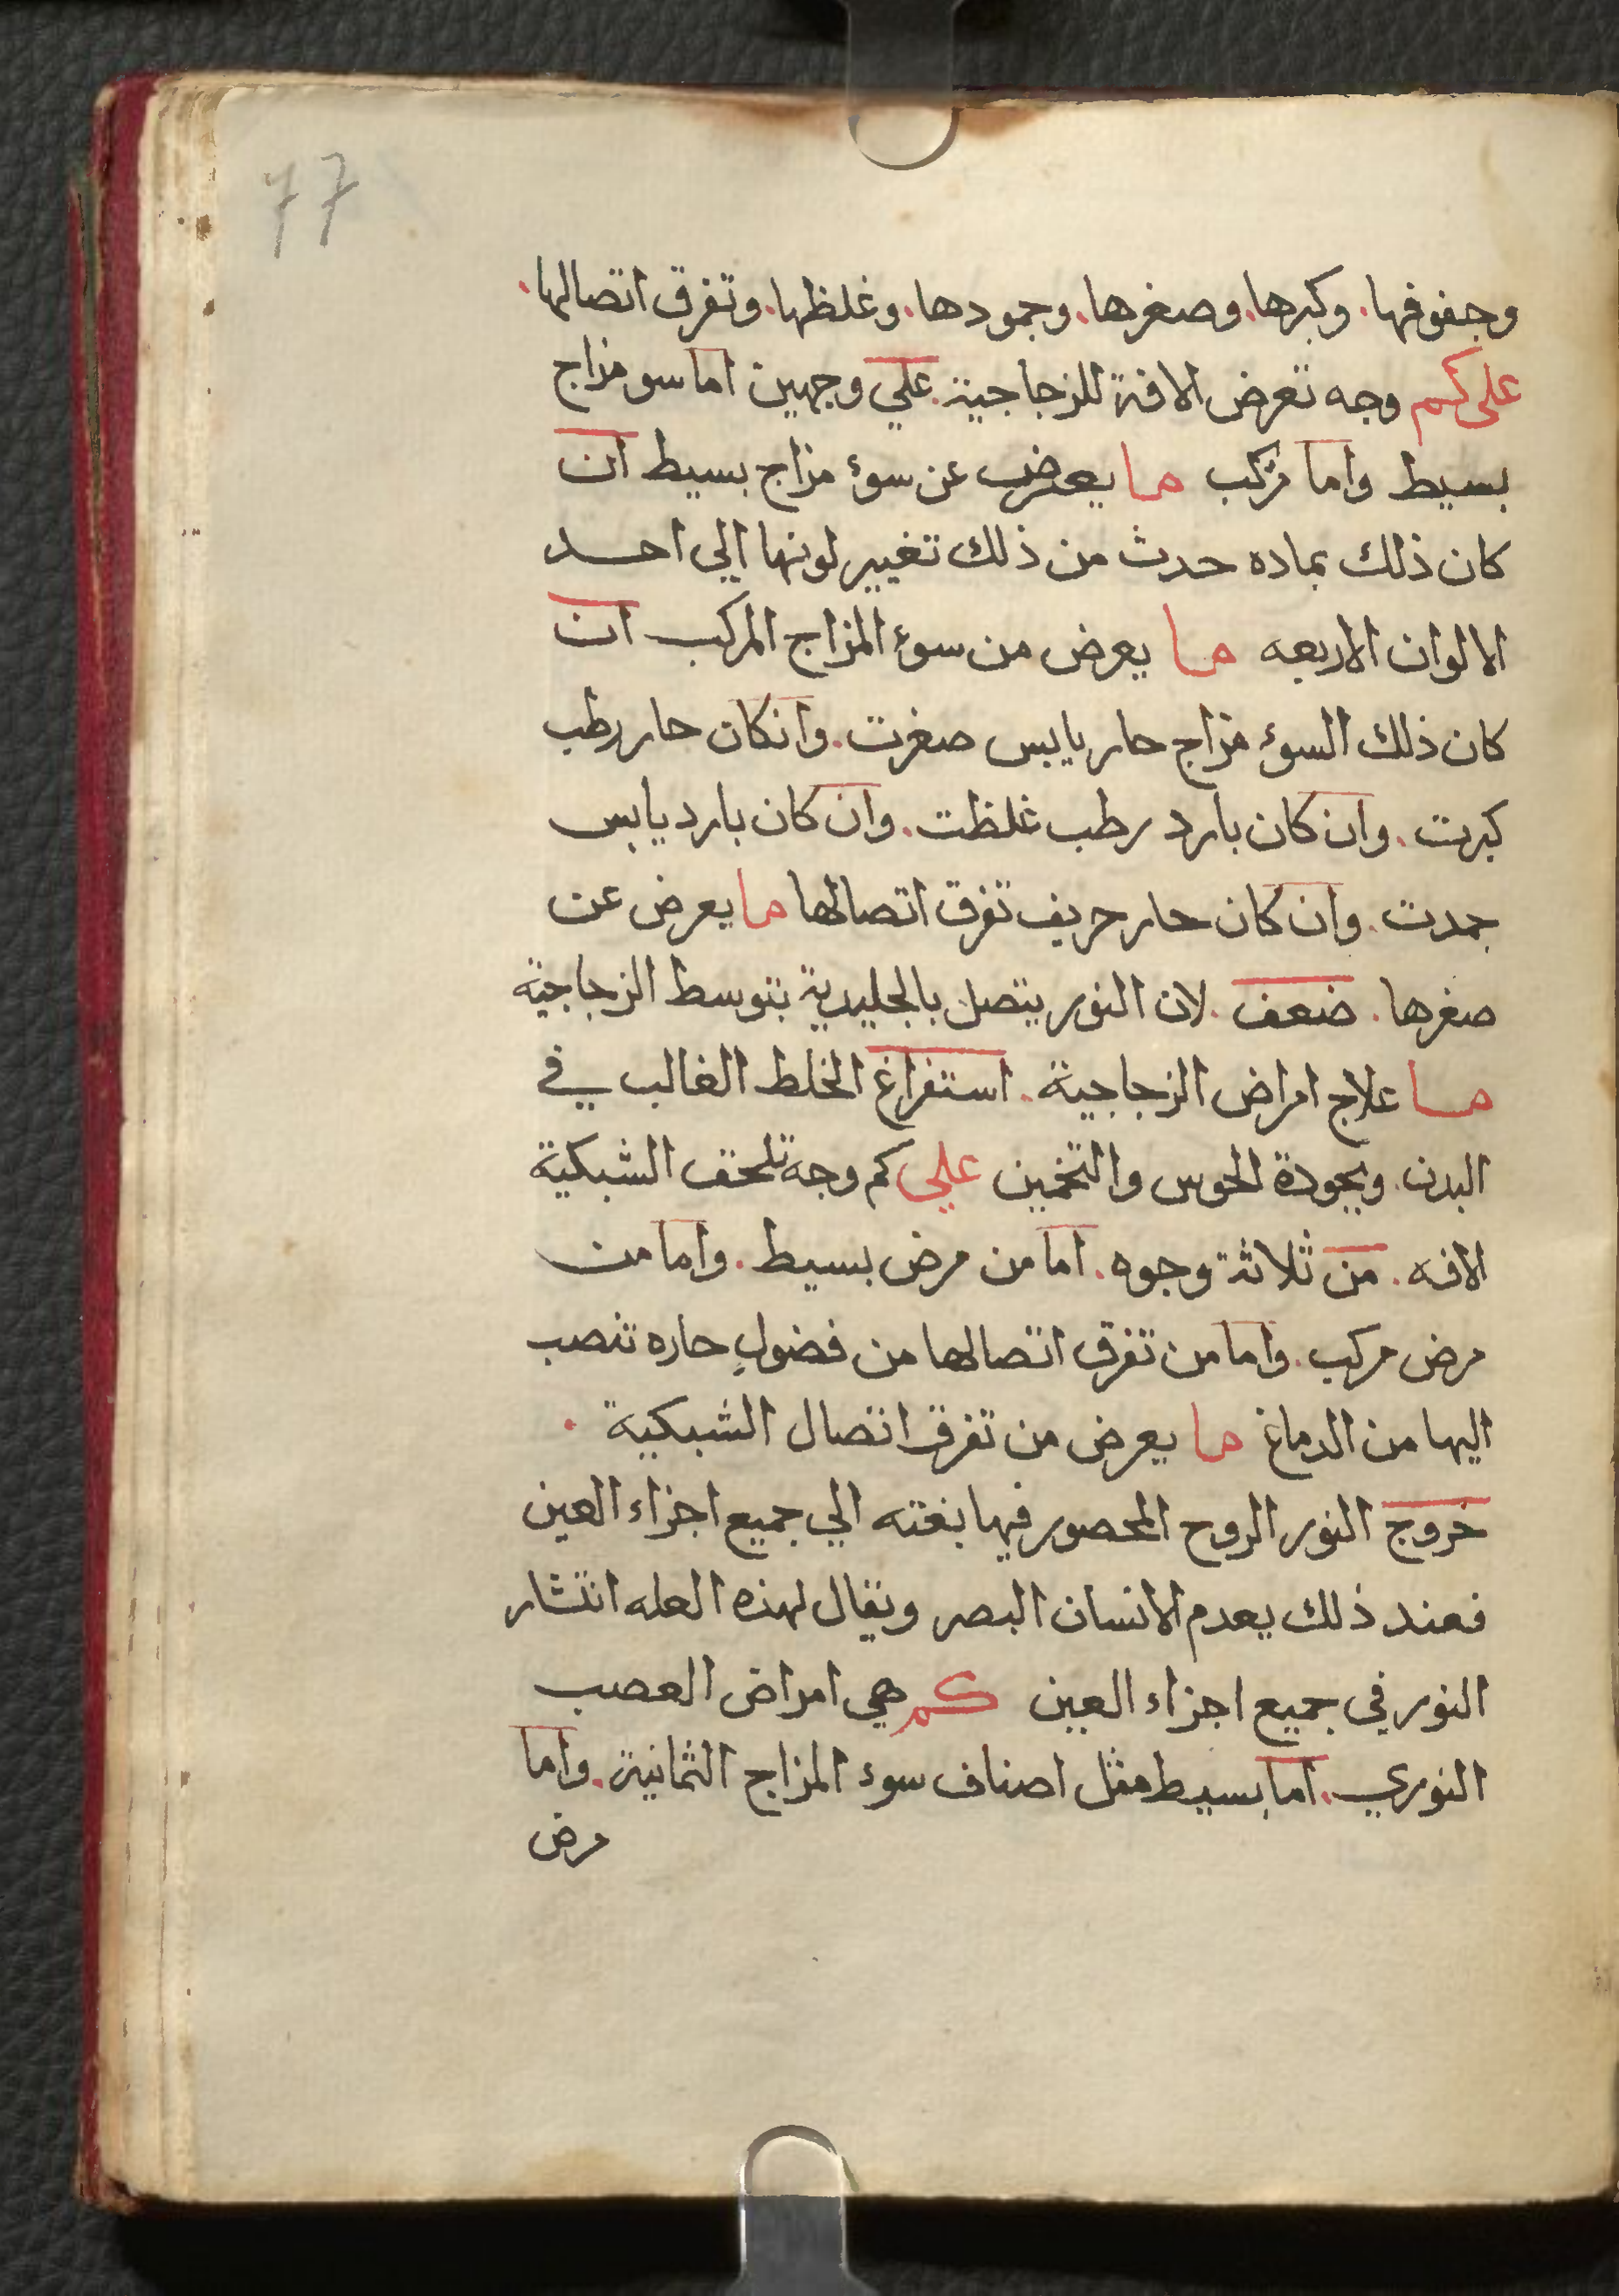 77
وجفوفها. وكبرها. وصغرها. وجمودها. وغلظها. وتفرق اتصالها.
على كم وجه تعرض الافة للزجاجية. علي وجهين اما سو مزاج
بسيط واما مركب ما يعرض عن سوء مزاج بسيط ان
كان ذلك بماده حدث من ذلك تغيير لونها الي احد
الالوان الاربعه ما يعرض من سوء المزاج المركب ان
كان ذلك السوء مزاج حار يابس صغرت. وانكان حار رطب
كبرت. وان كان بارد رطب غلظت. وان كان بارد يابس
جمدت. وان كان حار حريف تفرق اتصالها ما يعرض عن
صغرها. ضعف. لان النور يتصل بالجليدية بتوسط الزجاجية
ما علاج امراض الزجاجية. استفراغ الخلط الغالب في
البدن. وبجودة الحوس والتخمين علي كم وجه تلحق الشبكية
الافه. من ثلاثة وجوه. اما من مرض بسيط. واما من
مرض مركب. واما من تفرق اتصالها من فضول حاره تنصب
اليها من الدماغ ما يعرض من تفرق اتصال الشبكية .
خروج النور الروح المحصور فيها بغته الي جميع اجزاء العين
فعند ذلك يعدم الانسان البصر ويقال لهذه العله انتشار
النور في جميع اجزاء العين كم هي امراض العصب
النوري. اما بسيط مثل اصناف سوء المزاج الثمانية. واما
مرض